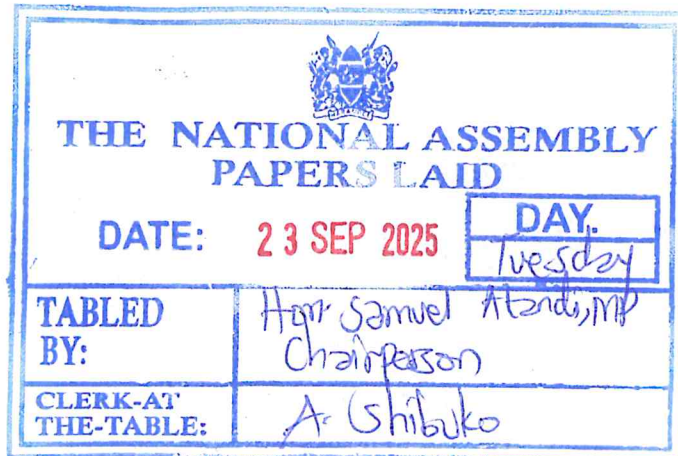 THE NATIONAL ASSEMBLY
PAPERS LAID
DATE: 23 SEP 2025
DAY.
Tuesday
TABLED BY:
Hon. Samuel Atandi, MP
Chairperson
CLERK-AT THE-TABLE:
A. Shibuko